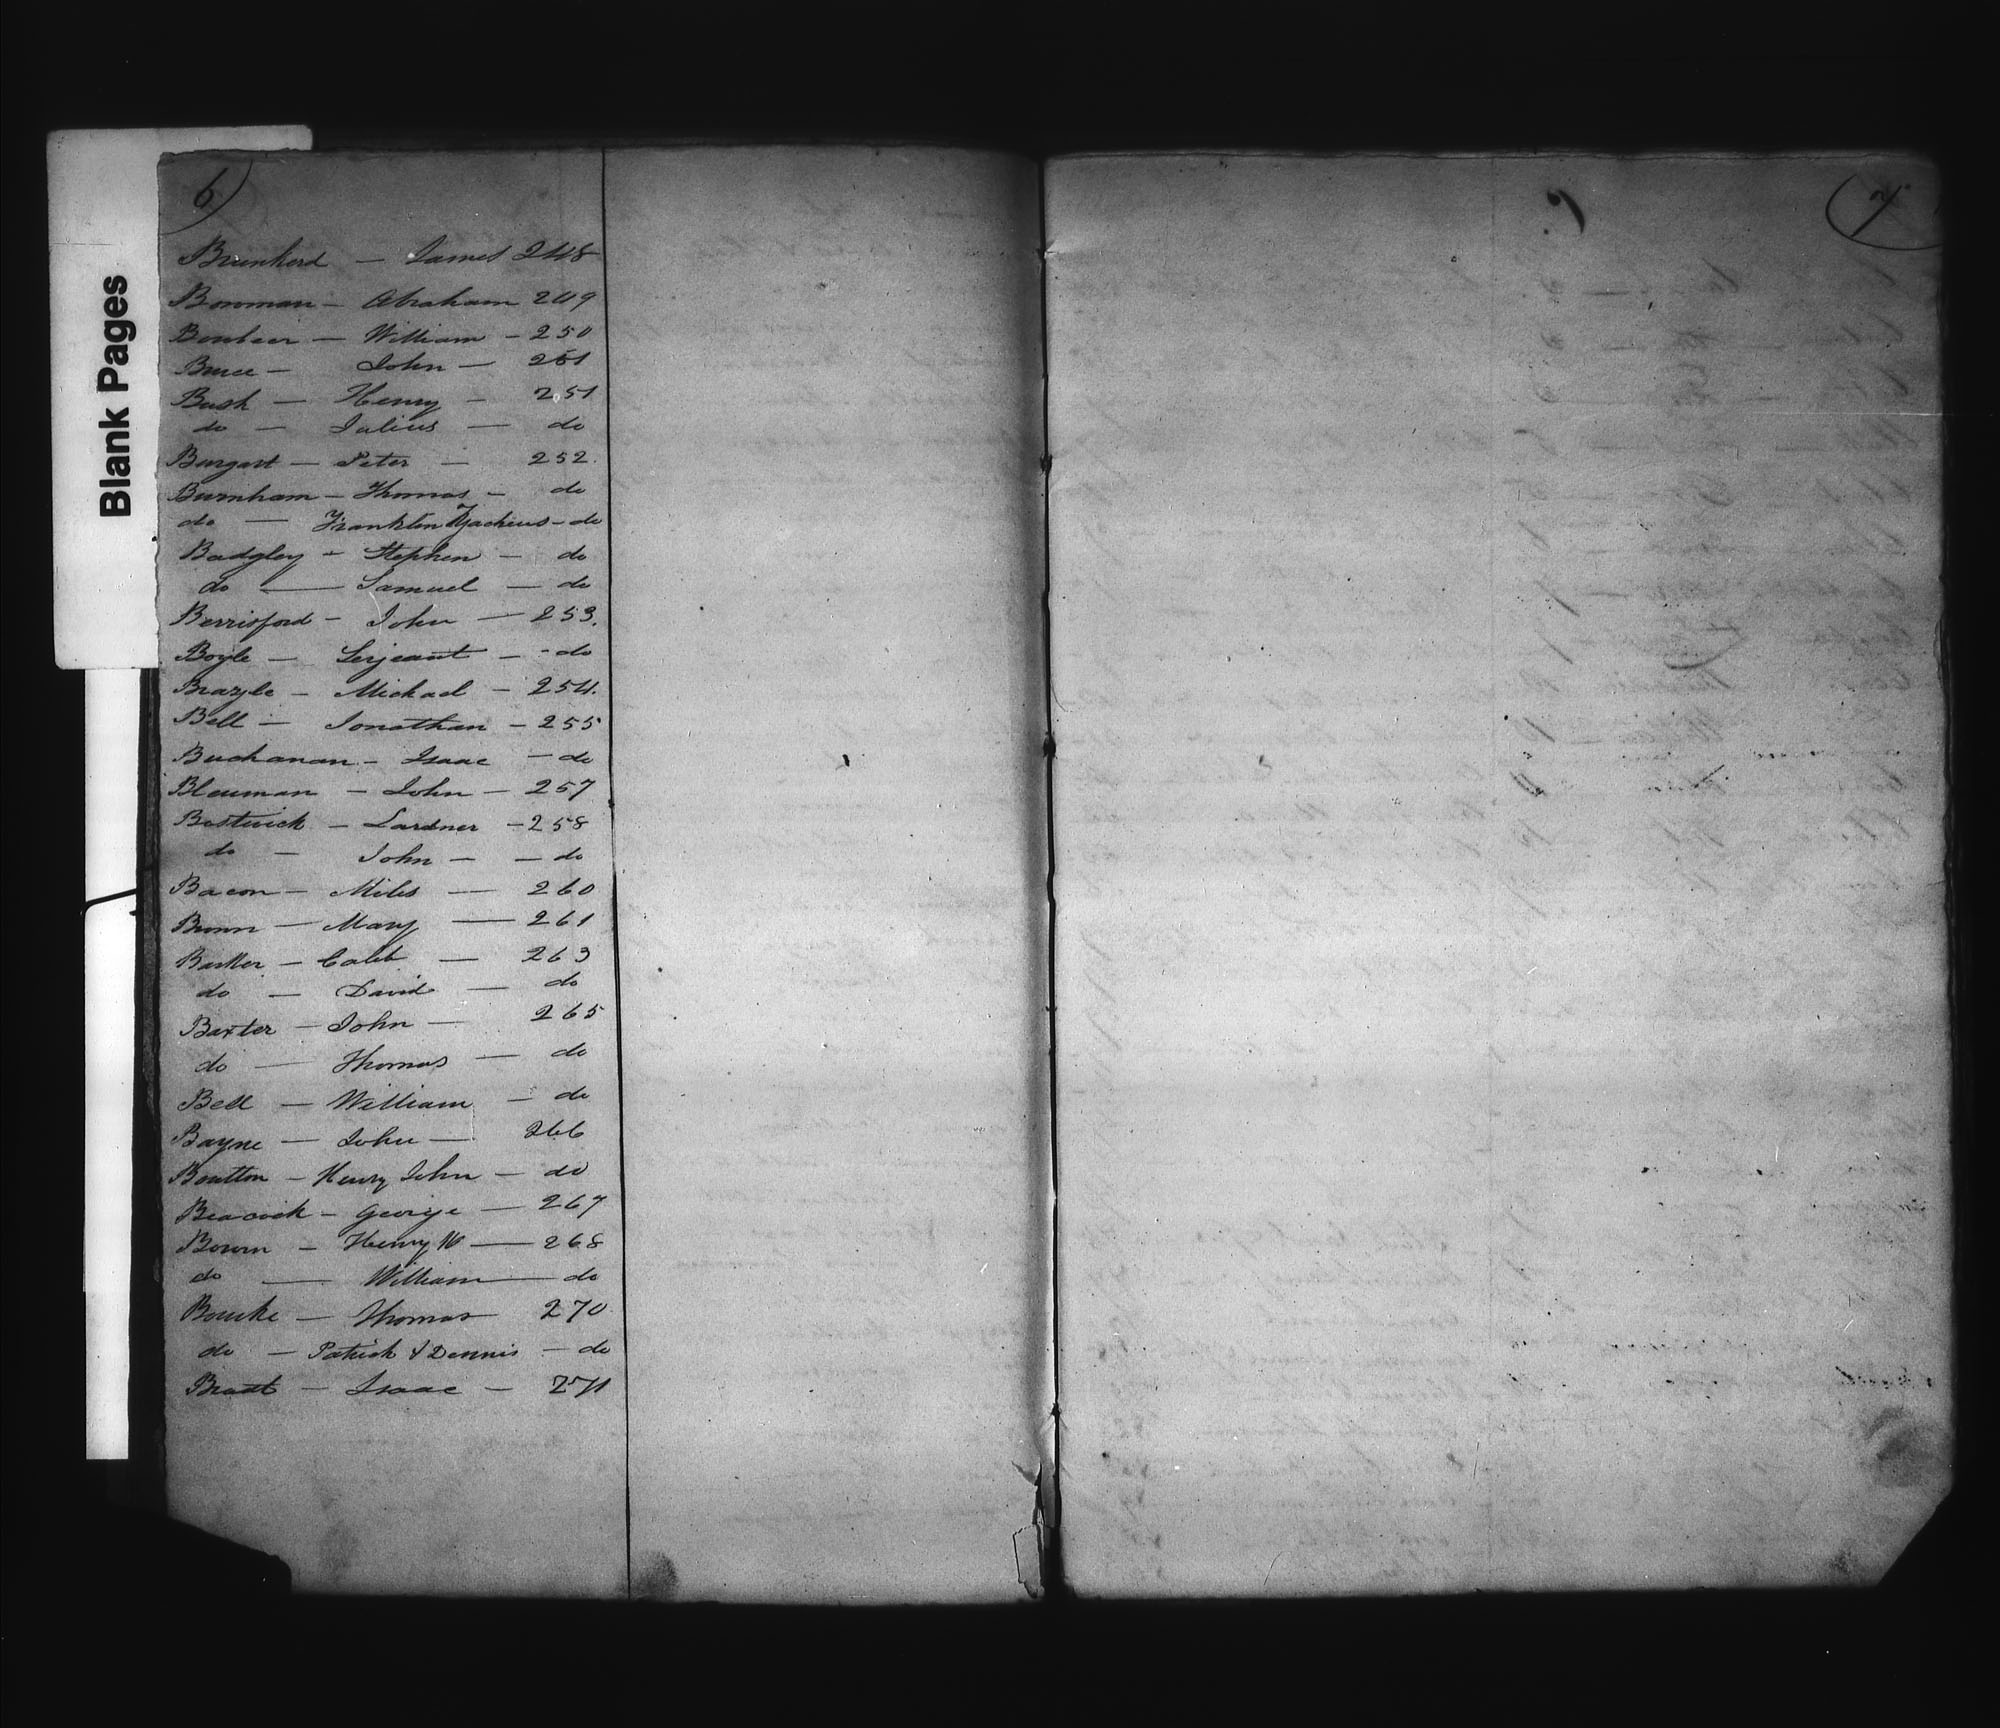 Blank Pages
6)
Brunkerd — James 248
Bowman — Abraham 249
Boulier — William — 250
Bruce — John — 251
Bush — Henry — 251
do — Julius — do
Burgart — Peter — 252.
Burnham — Thomas — do
do — Franklin Zacheus — do
Badgley — Stephen — do
do — Samuel — do
Berrisford — John — 253.
Boyle — Serjeant — - do
Brazyle — Michael — 254.
Bell — Jonathan — 255
Buchanan — Isaac — do
Bleuman — John — 257
Bostwick — Lardner — 258
do — John — — do
Bacon — Miles — 260
Brown — Mary — 261
Barker — Caleb — 263
do — David — do
Baxter — John — 265
do — Thomas — do
Bell — William — do
Bayne — John — 266
Boutton — Henry John — do
Beacock — George — 267
Bown — Henry W — 268
do — William — do
Bourke — Thomas 270
do — Patrick & Dennis — do
Bradt — Isaac — 271
(7